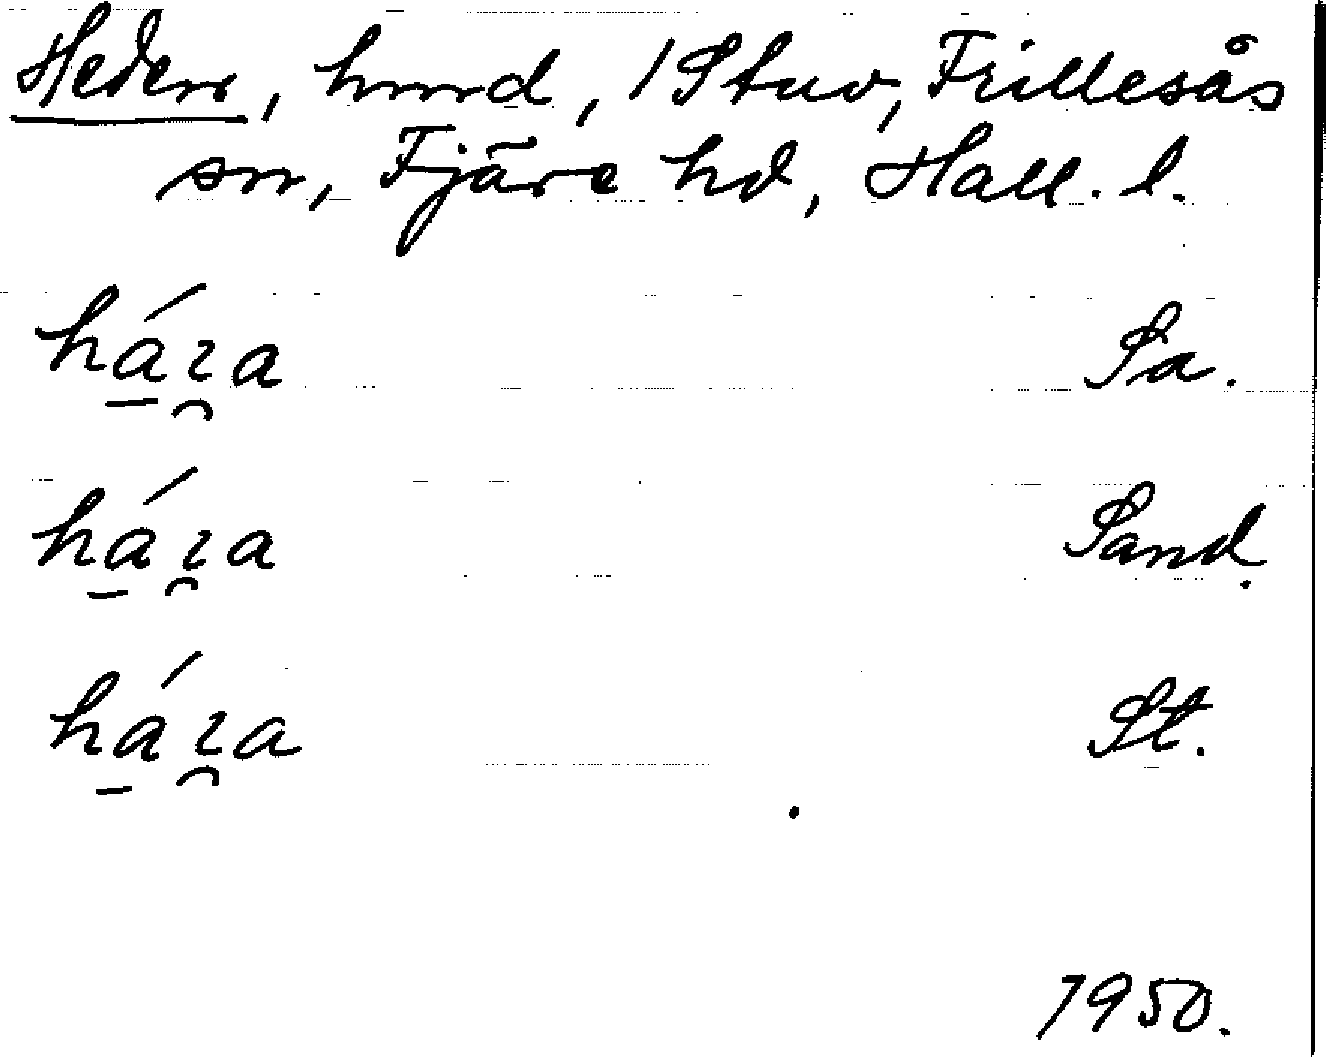 Heden, hmd, 1 Stuv, Frillesås
sn, Fjäre hd, Hall. l.
háɿa Sa.
háɿa Sand.
háɿa St.
1950.